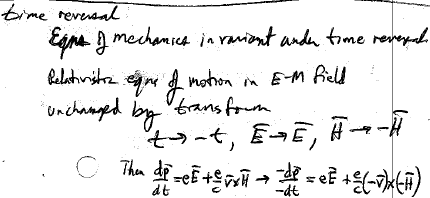 time reversal
Eqns of mechanics invariant under time reversal
Relativistic eqns of motion in E-M field
unchanged by transform
t → -t, E̅ → E̅, H̅ → -H̅
Then dp̅/dt = eE̅ + e/c v̅×H̅ → -dp̅/-dt = eE̅ + e/c(-v̅)×(-H̅)